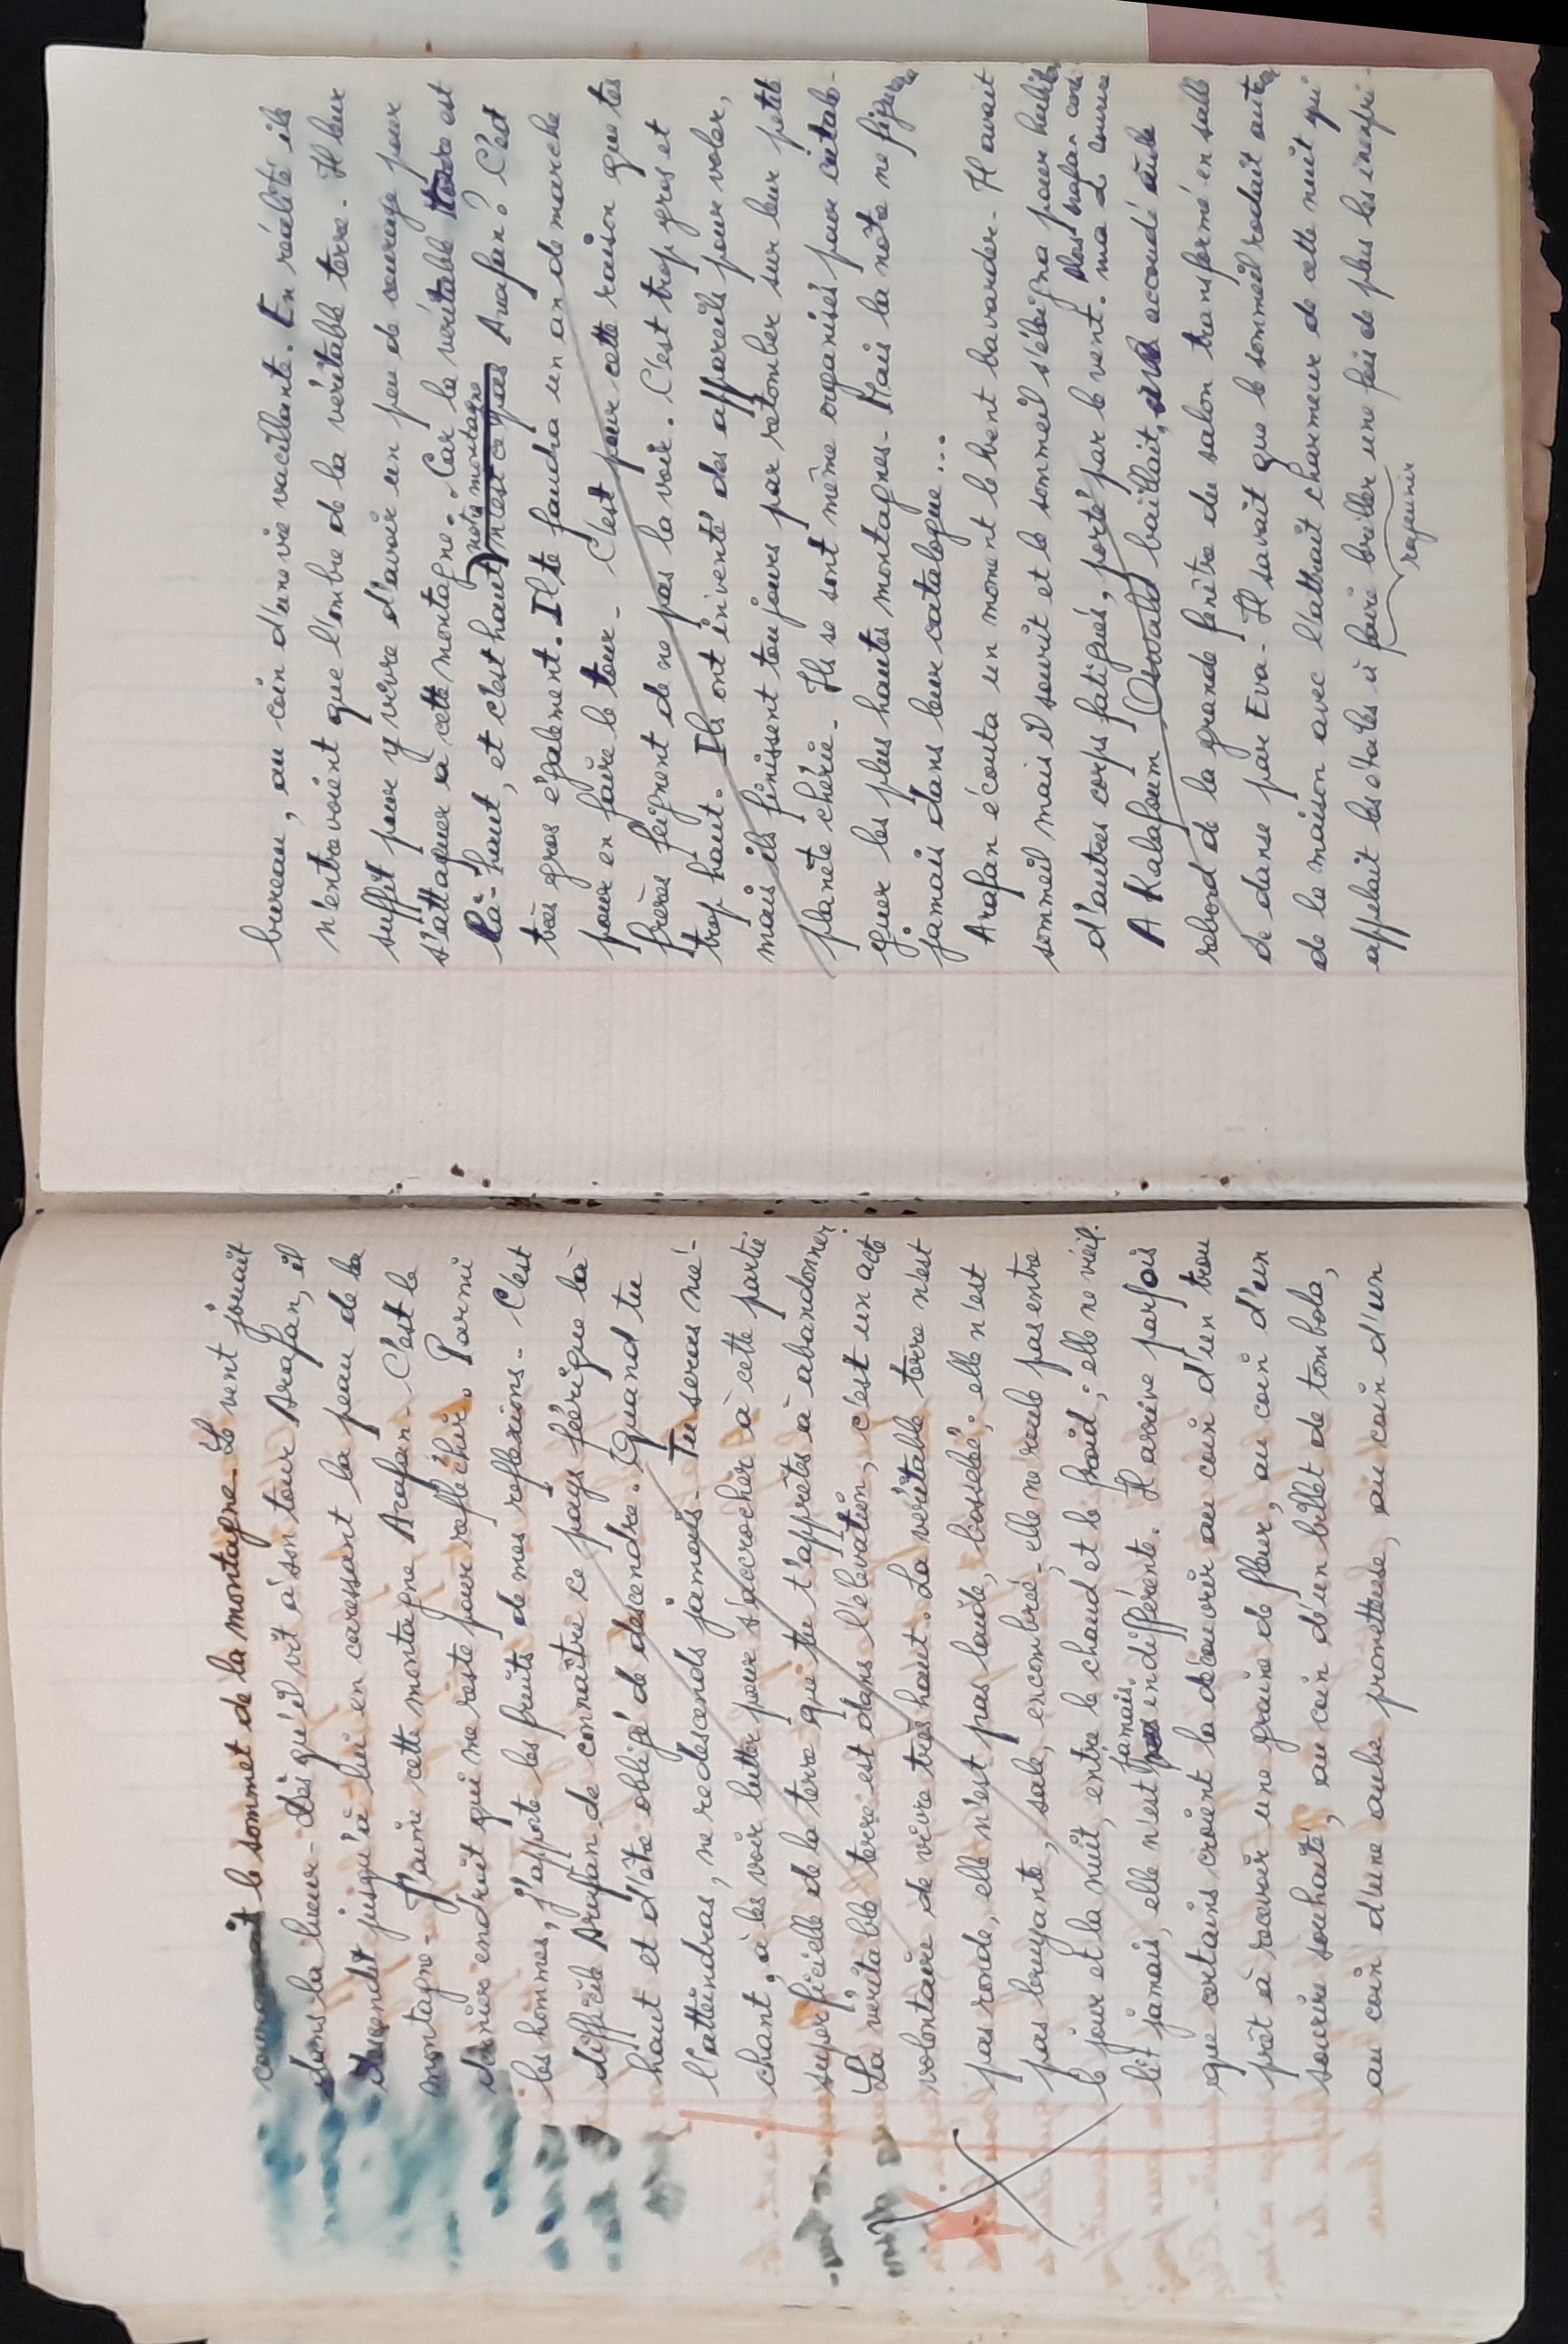 couronnait le sommet de la montagne. Le vent jouait
dans la lueur. Dès qu'il vit à son tour Arafan, il
descendit jusqu'à lui en caressant la peau de la
montagne. J'aime cette montagne Arafan. C'est le
dernier endroit qui me reste pour refléchir. Parmi
les hommes, j'apporte les fruits de mes reflexions. C'est
difficile Arafan de connaître ce pays féérique là
haut et d'être obligé de descendre. Quand tu
l'atteindras, ne redescends jamais. Tu seras mé-
chant, à les voir lutter pour s'accrocher à cette partie
superficielle de la terre que tu t'apprêtes à abandonner.
La véritable terre est dans l'élevation, c'est un acte
volontaire de vivre très haut. La véritable terre n'est
pas ronde, elle n'est pas laide, bosselée; elle n'est
pas bruyante, sale, encombrée. elle ne roule pas entre
le jour et la nuit, entre le chaud et le froid; elle ne vieil-
lit jamais, elle n'est jamais indifférente. Il arrive parfois
que certains croient la découvrir au coin d'un trou
prêt à recevoir une graine de fleur, au coin d'un
sourire souhaité, au coin d'un billet de tombola,
au coin d'une aube prometteuse, au coin d'un
bureau, au coin d'une vie vacillante. En réalité ils
n'entrevoient que l'ombre de la véritable terre. Il leur
suffit pour y vivre d'avoir un peu de courage pour
s'attaquer à cette montagne. Car la véritable terre est
notre montagne
là-haut, et c'est haut n'est ce pas Arafan? C'est
très gros également. Il te faudra un an de marche
pour en faire le tour. C'est pour cette raison que tes
frères feignent de ne pas la voir. C'est trop gros et
trop haut. Ils ont inventé des appareils pour voler,
mais ils finissent toujours par retomber sur leur petite
planète chérie. Ils se sont même organisés pour catalo-
guer les plus hautes montagnes. Mais la nôtre ne figure
jamais dans leur catalogue...
Arafan écouta un moment le bent bavarder. Il avait
sommeil mais il sourit et le sommeil s'éloigna pour
d'autres corps fatigués, porté par le vent. Mais Arafan
ma sa course
A Kalafoum Oswald baillait, accoudé au
rebord de la grande fenêtre du salon transformé en salle
de danse par Eva. Il savait que le sommeil rodait autour
de la maison avec l'attrait charmeur de cette nuit qui
appelait les étoiles à faire briller une fois de plus les inexpri-
rajeunir